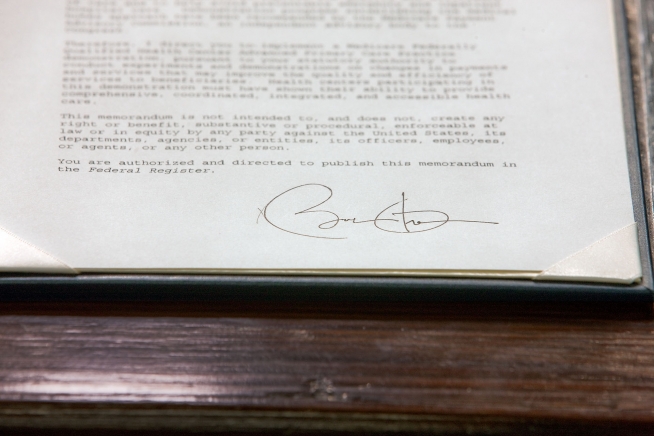 Therefore, I direct you to implement a Medicare Federally
Qualified Health
demonstration, pursuant to your statutory authority to
conduct experiments and demonstrations on changes in payments
and services that may improve the quality and efficiency of
services to beneficiaries. Health centers participating in
this demonstration must have shown their ability to provide
comprehensive, coordinated, integrated, and accessible health
care.
This memorandum is not intended to, and does not, create any
right or benefit, substantive or procedural, enforceable at
law or in equity by any party against the United States, its
departments, agencies, or entities, its officers, employees,
or agents, or any other person.
You are authorized and directed to publish this memorandum in
the Federal Register.